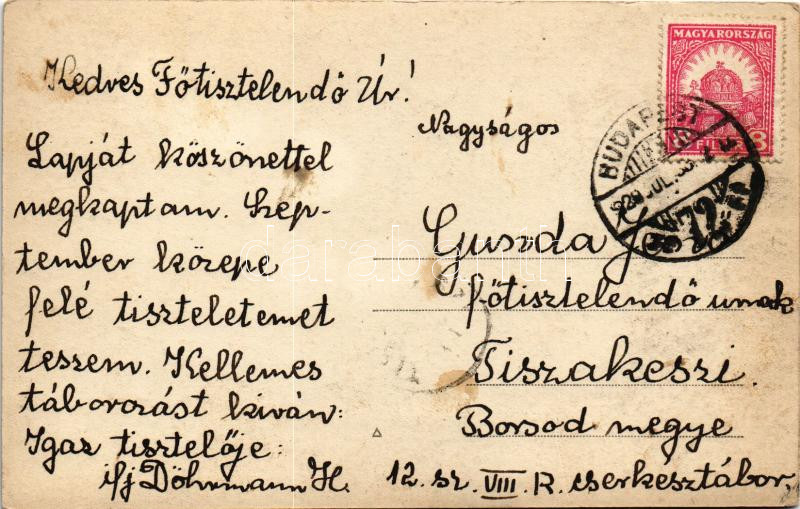 Kedves Főtisztelendő Úr!
Lapját köszönettel
megkaptam. Szep-
tember közepe
felé tiszteletemet
teszem. Kellemes
táborozást kíván:
Igaz tisztelője:
ifj Döhrmann H.
MAGYARORSZÁG
8
BUDAPEST
72
Nagyságos
Guszda
főtisztelendő urnak
Tiszakeszi.
Borsod megye
12. sz. VIII. R. cserkésztábor.
darabanth